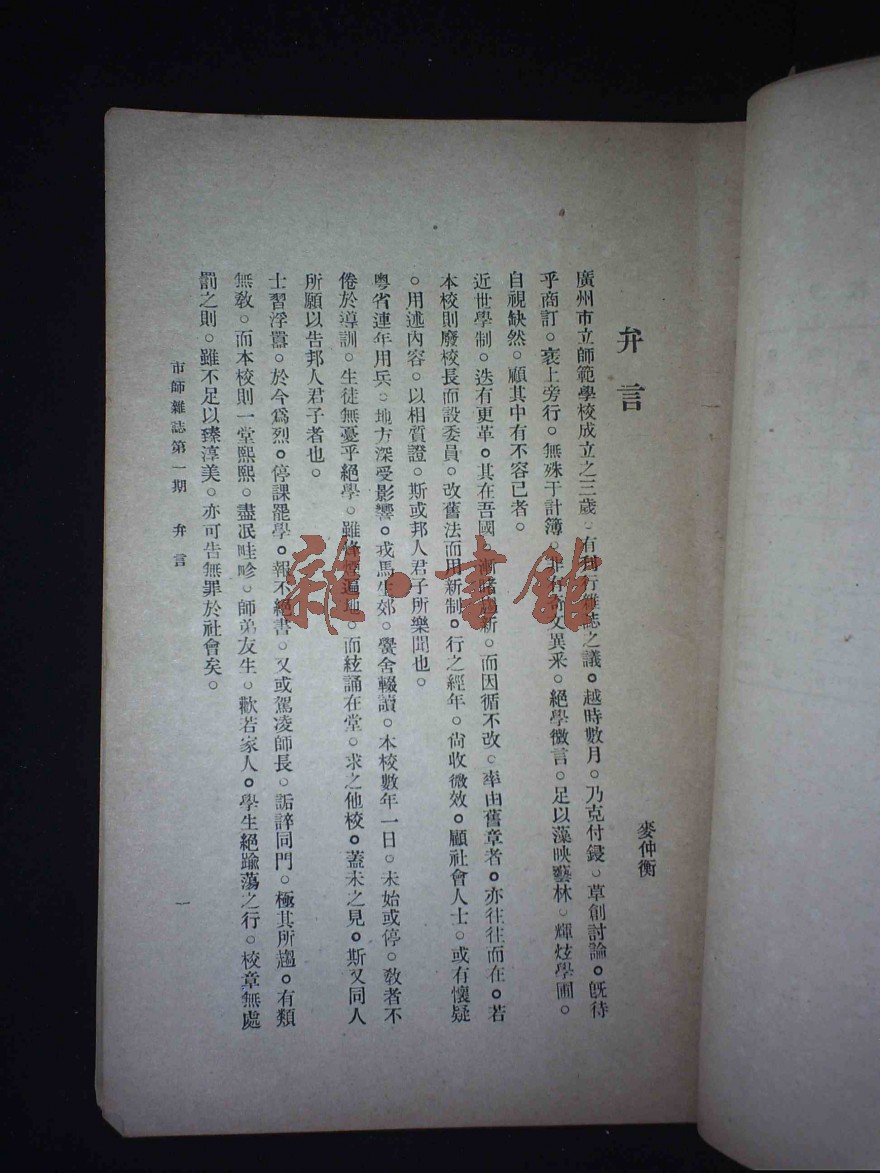 弁言
麥仲衡
廣州市立師範學校成立之三歲。有刊行雜誌之議。越時數月。乃克付鋟。草創討論。旣待
乎商訂。袤上旁行。無殊于計簿。非有奇文異采。絕學微言。足以藻映藝林。輝炫學圃。
自視缺然。顧其中有不容已者。
近世學制。迭有更革。其在吾國。漸睹趨新。而因循不改。率由舊章者。亦往往而在。若
本校則廢校長而設委員。改舊法而用新制。行之經年。尙收微效。顧社會人士。或有懷疑
。用述內容。以相質證。斯或邦人君子所樂聞也。
粵省連年用兵。地方深受影響。戎馬生郊。黌舍輟讀。本校數年一日。未始或停。敎者不
倦於導訓。生徒無憂乎絕學。雖烽煙遍地。而絃誦在堂。求之他校。蓋未之見。斯又同人
所願以告邦人君子者也。
士習浮囂。於今爲烈。停課罷學。報不絕書。又或駕凌師長。詬誶同門。極其所趨。有類
無敎。而本校則一堂熙熙。盡泯畦畛。師弟友生。歡若家人。學生絕踰蕩之行。校章無處
罰之則。雖不足以臻淳美。亦可告無罪於社會矣。
市師雜誌第一期 弁言
一
雜·書館